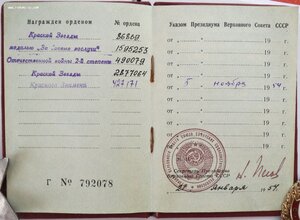 Награжден орденом № ордена
Красной Звезды 36869
медалью „За боевые заслуги“ 1595253
Отечественной войны 2-й степени 490079
Красной Звезды 2877064
Красного Знамени
Г № 792078
Указом Президиума Верховного Совета СССР
от „ “ 19 г.
от „ “ 19 г.
от „ “ 19 г.
от „ “ 19 г.
от „ 5 “ ноября 1954 г.
от „ “ 19 г.
от „ “ 19 г.
от „ “ 19 г.
от „ “ 19 г.
Секретарь Президиума
Верховного Совета СССР
января